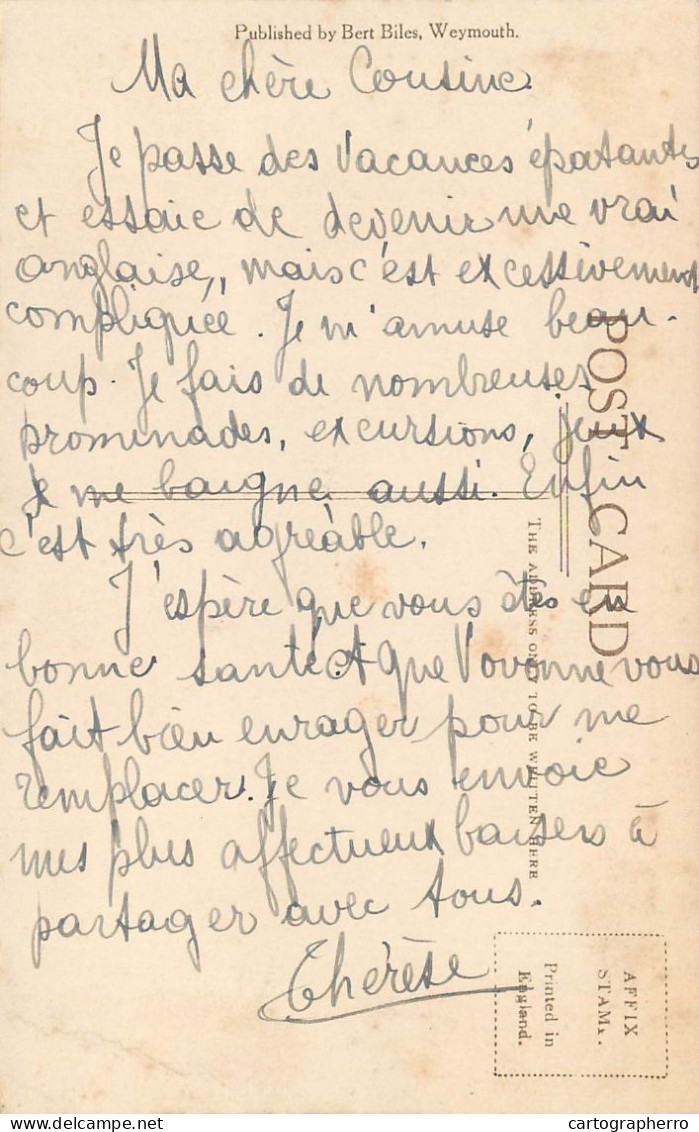 Published by Bert Biles, Weymouth.
Ma chère Cousine
Je passe des vacances épatantes
et essaie de devenir une vrai
anglaise, mais c'est excessivement
compliquée. Je m'amuse beau-
coup. Je fais de nombreuses
prominades, excursions,
je me baigne aussi. Enfin
c'est très agréable.
J'espère que vous êtes en
bonne santé. Et que Vovonne vous
fait bien enrager pour me
remplacer. Je vous envoie
mes plus affectueux baisers à
partager avec tous.
Thérèse
POST CARD
THE ADDRESS ONLY TO BE WRITTEN HERE
AFFIX
STAMP.
Printed in
England.
cartographerro